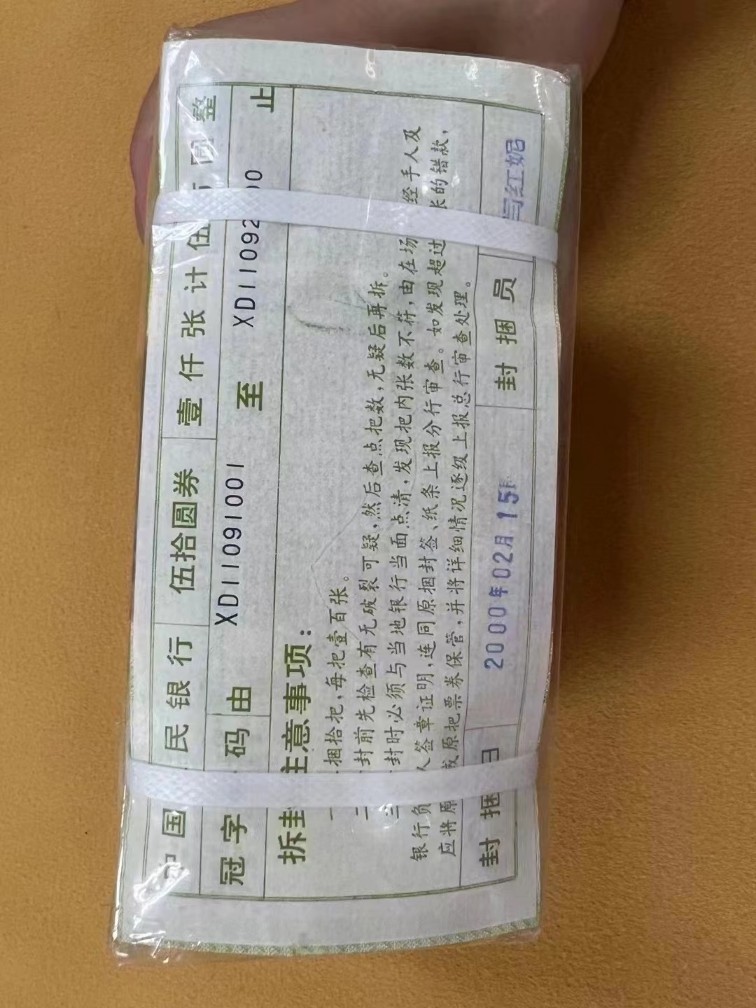 中国 民银行 伍拾圆券 壹仟张计伍 圆整
冠字 码由 XD11091001 至 XD11092 00 止
拆封注意事项:
一 捆拾把,每把壹百张。
二 封前先检查有无破裂可疑,然后查点把数,无疑后再拆。
三 封时必须与当地银行当面点清,发现把内张数不符,由在场 经手人及
银行负 人签章证明,连同原捆封签、纸条上报分行审查。如发现超过 张的错款,
应将原 或原把票券保管,并将详细情况逐级上报总行审查处理。
封捆 日 2000年02月15日 封捆员 红妮